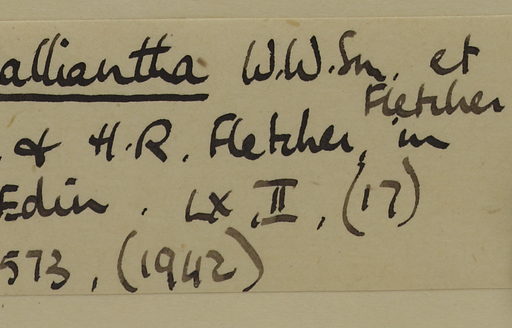 alliantha W.W.Sm. et
Fletcher
. & H.R. Fletcher, in
Edin. LX, II, (17)
573, (1942)